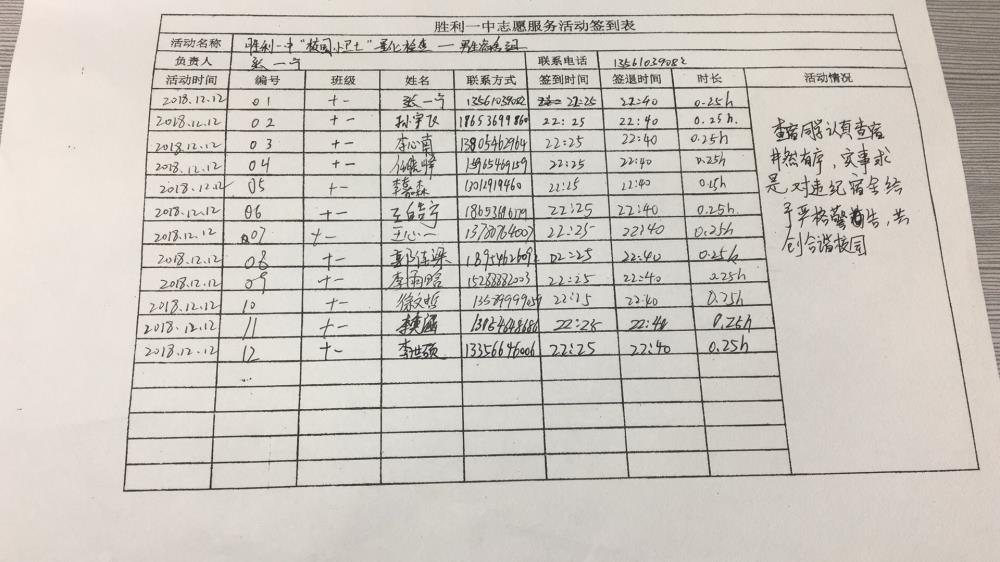 胜利一中志愿服务活动签到表
活动名称 胜利一中“校园小卫士”量化检查——男生宿舍组
负责人 张一宁 联系电话 13561039082
活动时间 编号 班级 姓名 联系方式 签到时间 签退时间 时长 活动情况
2018.12.12 01 十一 张一宁 13561039082 22:25 22:40 0.25h
2018.12.12 02 十一 18653699860 22:25 22:40 0.25h.
2018.12.12 03 十一 李心南 13805462964 22:25 22:40 0.25h
2018.12.12 04 十一 15965409159 22:25 22:40 0.25h
2018.12.12 05 十一 李嘉森 22:25 22:40 0.25h
2018.12.12 06 十一 王皓宇 22:25 22:40 0.25h.
2018.12.12 07 十一 王心一 13780764007 22:25 22:40 0.25h
2018.12.12 08 十一 22:25 22:40 0.25h
2018.12.12 09 十一 李雨晗 15288882003 22:25 22:40 0.25h
2018.12.12 10 十一 徐文哲 13589999059 22:25 22:40 0.25h
2018.12.12 11 十一 22:25 22:40 0.25h
2018.12.12 12 十一 李世硕 13356646006 22:25 22:40 0.25h
查宿同学认真查宿
井然有序，实事求
是对违纪宿舍给
予严格警告，共
创合谐校园